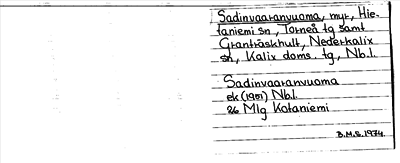 Sadinvaaranvuoma, myr, Hie-
taniemi sn, Torneå tg samt
Granträskhult, Nederkalix
sn, Kalix doms. tg, Nb.l.
Sadinvaaranvuoma
ek (1951) Nb.l.
26 Mlg Kotaniemi
B.M.S. 1974.